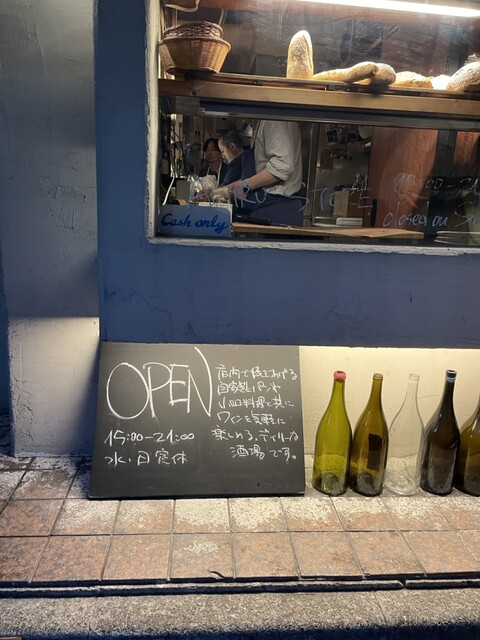 Cash only
STORE
closed on Su
OPEN
15:00-21:00
水、日定休
店内で焼き上げる
自家製パンや
小皿料理と共に
ワインを気軽に
楽しめる、デイリーな
酒場です。